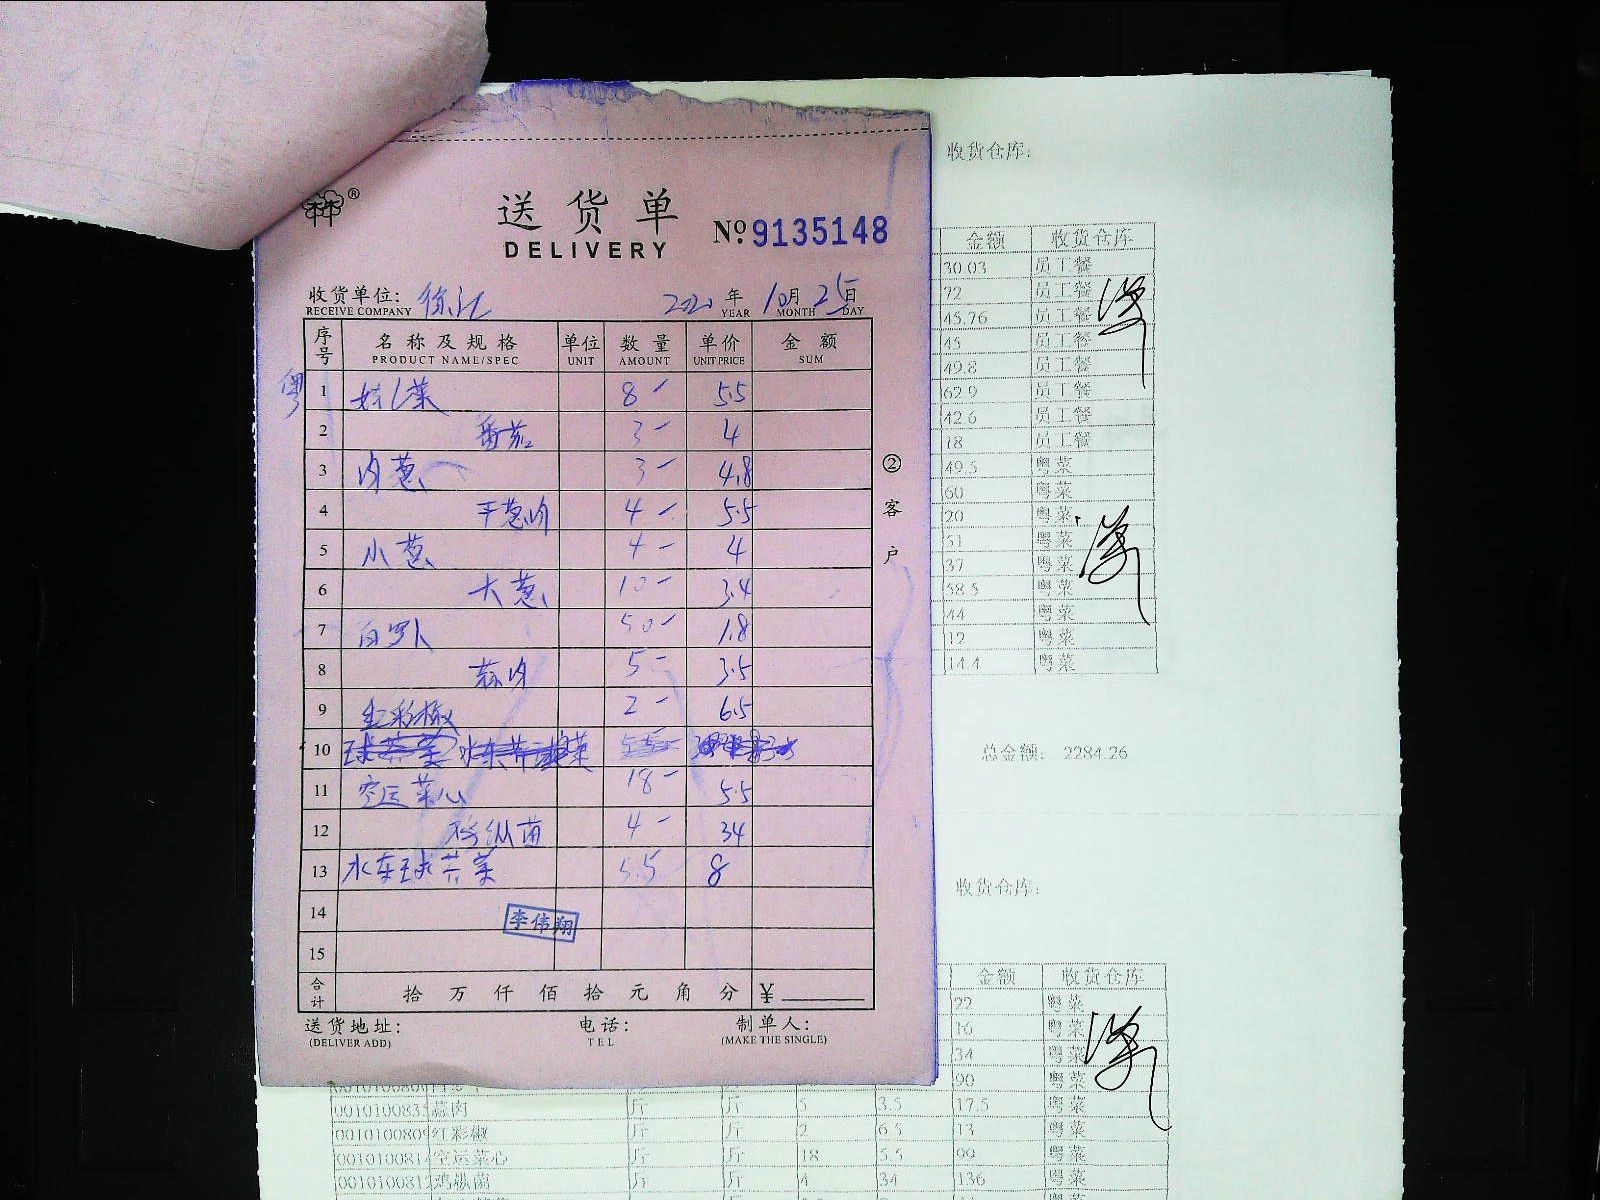 送货单
DELIVERY
№ 9135148
收货单位:
RECEIVE COMPANY
2020 年 10月 25日
YEAR MONTH DAY
序号 名称及规格 单位 数量 单价 金额
PRODUCT NAME/SPEC UNIT AMOUNT UNIT PRICE SUM
粤
1 娃儿菜 8 - 5.5
2 番茄 3 - 4
3 肉葱 3 - 4.8
4 干葱 4 - 5.5
5 小葱 4 - 4
6 大葱 10 - 3.4
7 白罗卜 50 - 1.8
8 蒜肉 5 - 3.5
9 红彩椒 2 - 6.5
10
11 空运菜心 18 - 5.5
12 4 - 34
13 水东芥菜 5.5 8
14
15
李伟翔
合计 拾 万 仟 佰 拾 元 角 分 ¥
送货地址: 电话: 制单人:
(DELIVER ADD) TEL (MAKE THE SINGLE)
②客户
收货仓库:
金额 收货仓库
30.03 员工餐
72 员工餐
45.76 员工餐
45 员工餐
49.8 员工餐
62.9 员工餐
42.6 员工餐
18 员工餐
49.5 粤菜
60 粤菜
20 粤菜
51 粤菜
37 粤菜
58.5 粤菜
44 粤菜
12 粤菜
14.4 粤菜
总金额: 2284.26
收货仓库:
金额 收货仓库
22 粤菜
16 粤菜
34 粤菜
90 粤菜
蒜肉 斤 斤 5 3.5 17.5 粤菜
红彩椒 斤 斤 2 6.5 13 粤菜
空运菜心 斤 斤 18 5.5 99 粤菜
鸡枞菌 斤 斤 4 34 136 粤菜